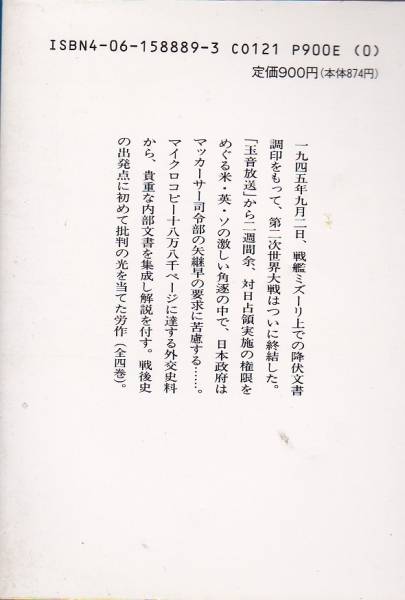 ISBN4-06-158889-3 C0121 P900E (0)
定価900円(本体874円)
一九四五年九月二日、戦艦ミズーリ上での降伏文書
調印をもって、第二次世界大戦はついに終結した。
「玉音放送」から二週間余、対日占領実施の権限を
めぐる米・英・ソの激しい角逐の中で、日本政府は
マッカーサー司令部の矢継早の要求に苦慮する……。
マイクロコピー十八万八千ページに達する外交史料
から、貴重な内部文書を集成し解説を付す。戦後史
の出発点に初めて批判の光を当てた労作(全四巻)。